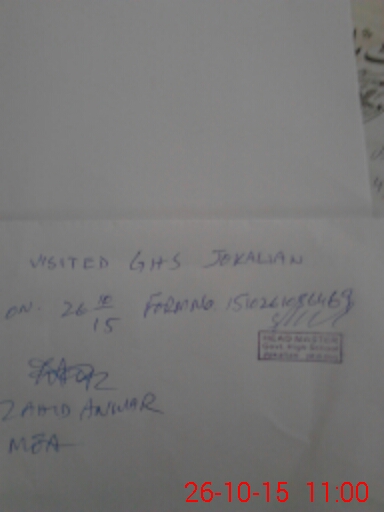 VISITED GHS JOKALIAN
ON. 26 10/15 FORM NO.
HEAD MASTER
Govt. High School
ZAHID ANWAR
MEA
26-10-15 11:00